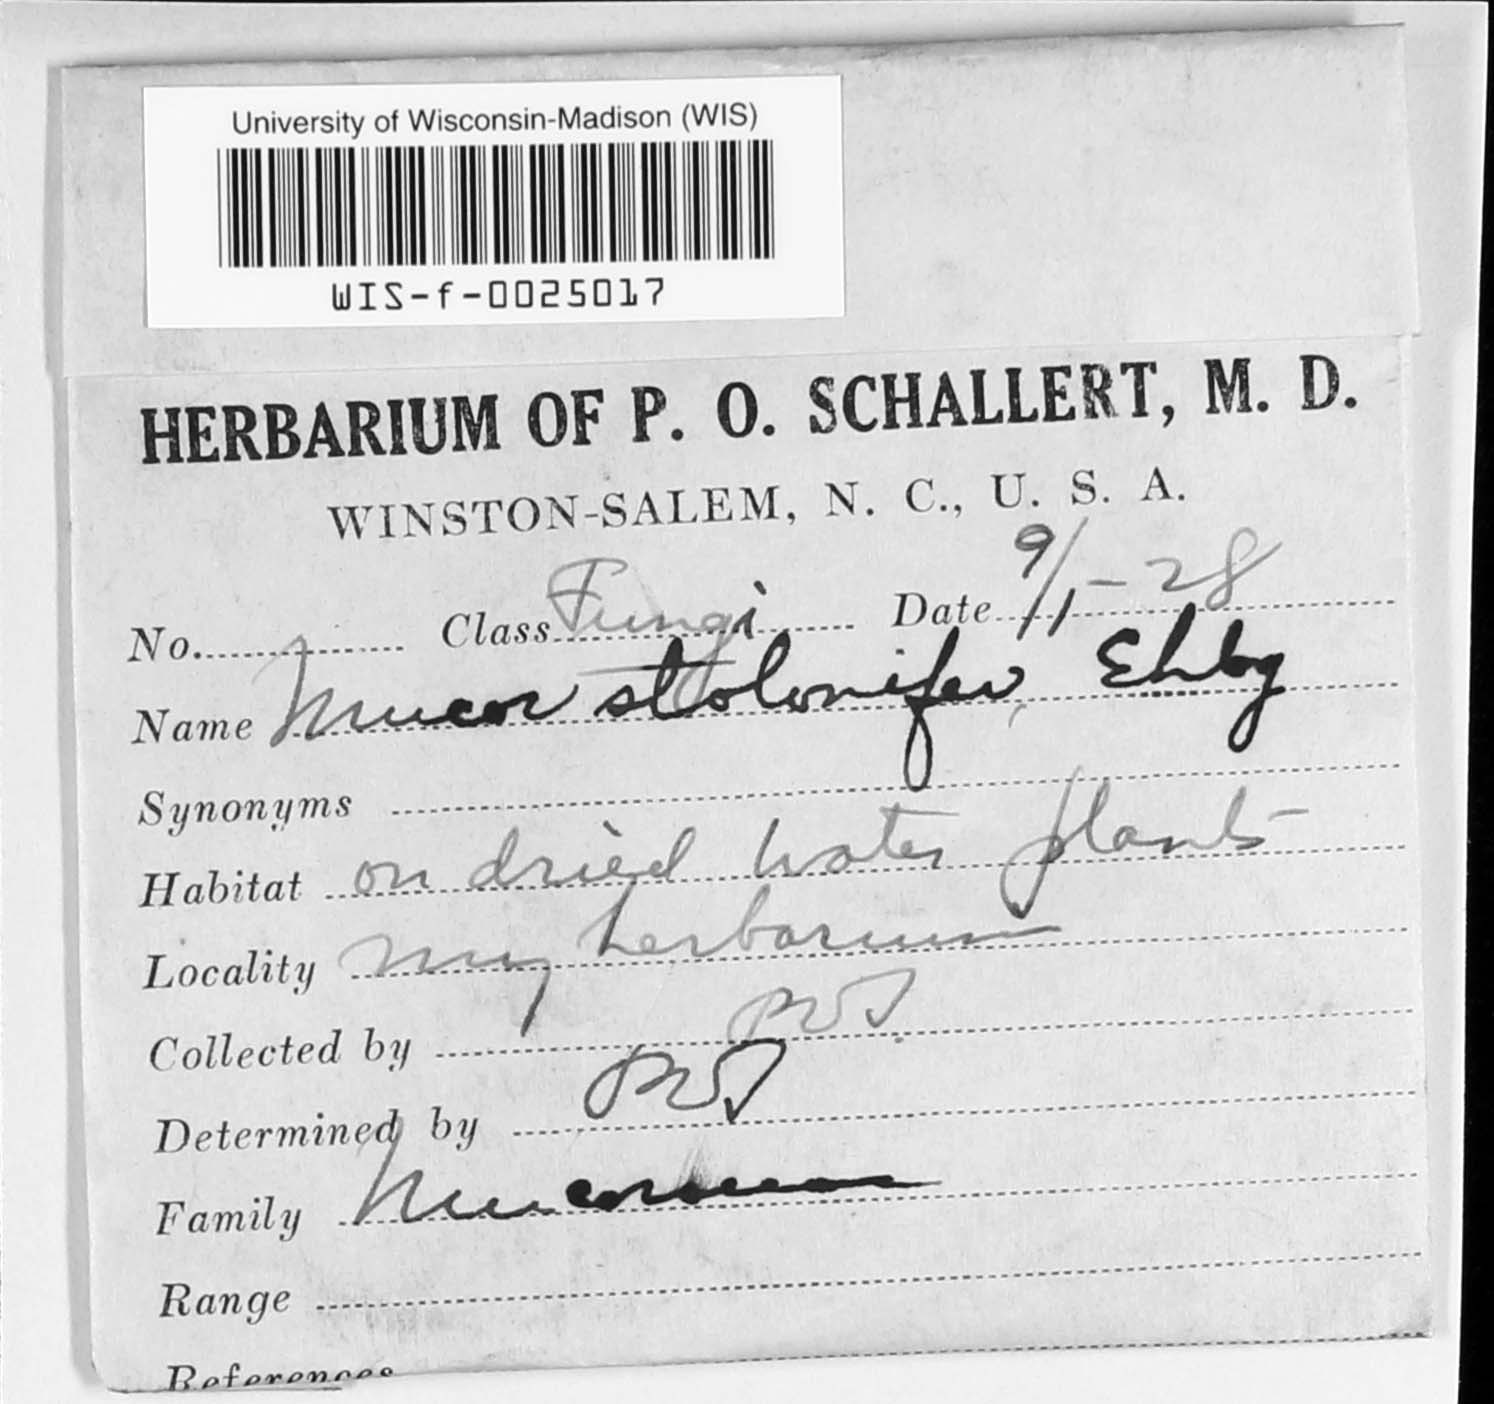 University of Wisconsin-Madison (WIS)
WIS-f-0025017
HERBARIUM OF P. O. SCHALLERT, M. D.
WINSTON-SALEM, N. C., U. S. A.
No. Class Fungi Date 9/1-28
Name Mucor stolonifer, Ehbg
Synonyms
Habitat on dried water plants
Locality my herbarium
Collected by POS
Determined by POS
Family
Range
References